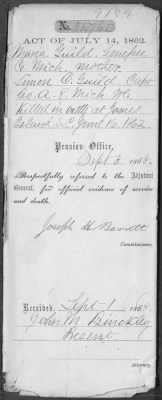 9159
ACT OF JULY 14, 1862.
Maria Guild, Genesee
Co Mich, mother,
Simon C. Guild, Capt
Co. A. 8 Mich Vol.
Killed in battle at James
Island S. C. June 16, 1862
Pension Office,
Sept 3 186
Respectfully referred to the Adjutant
General, for official evidence of service
and death.
Joseph H Barrett
Commissioner.
Received, Sept 1 186
John M Binckley
Present
Attorney.